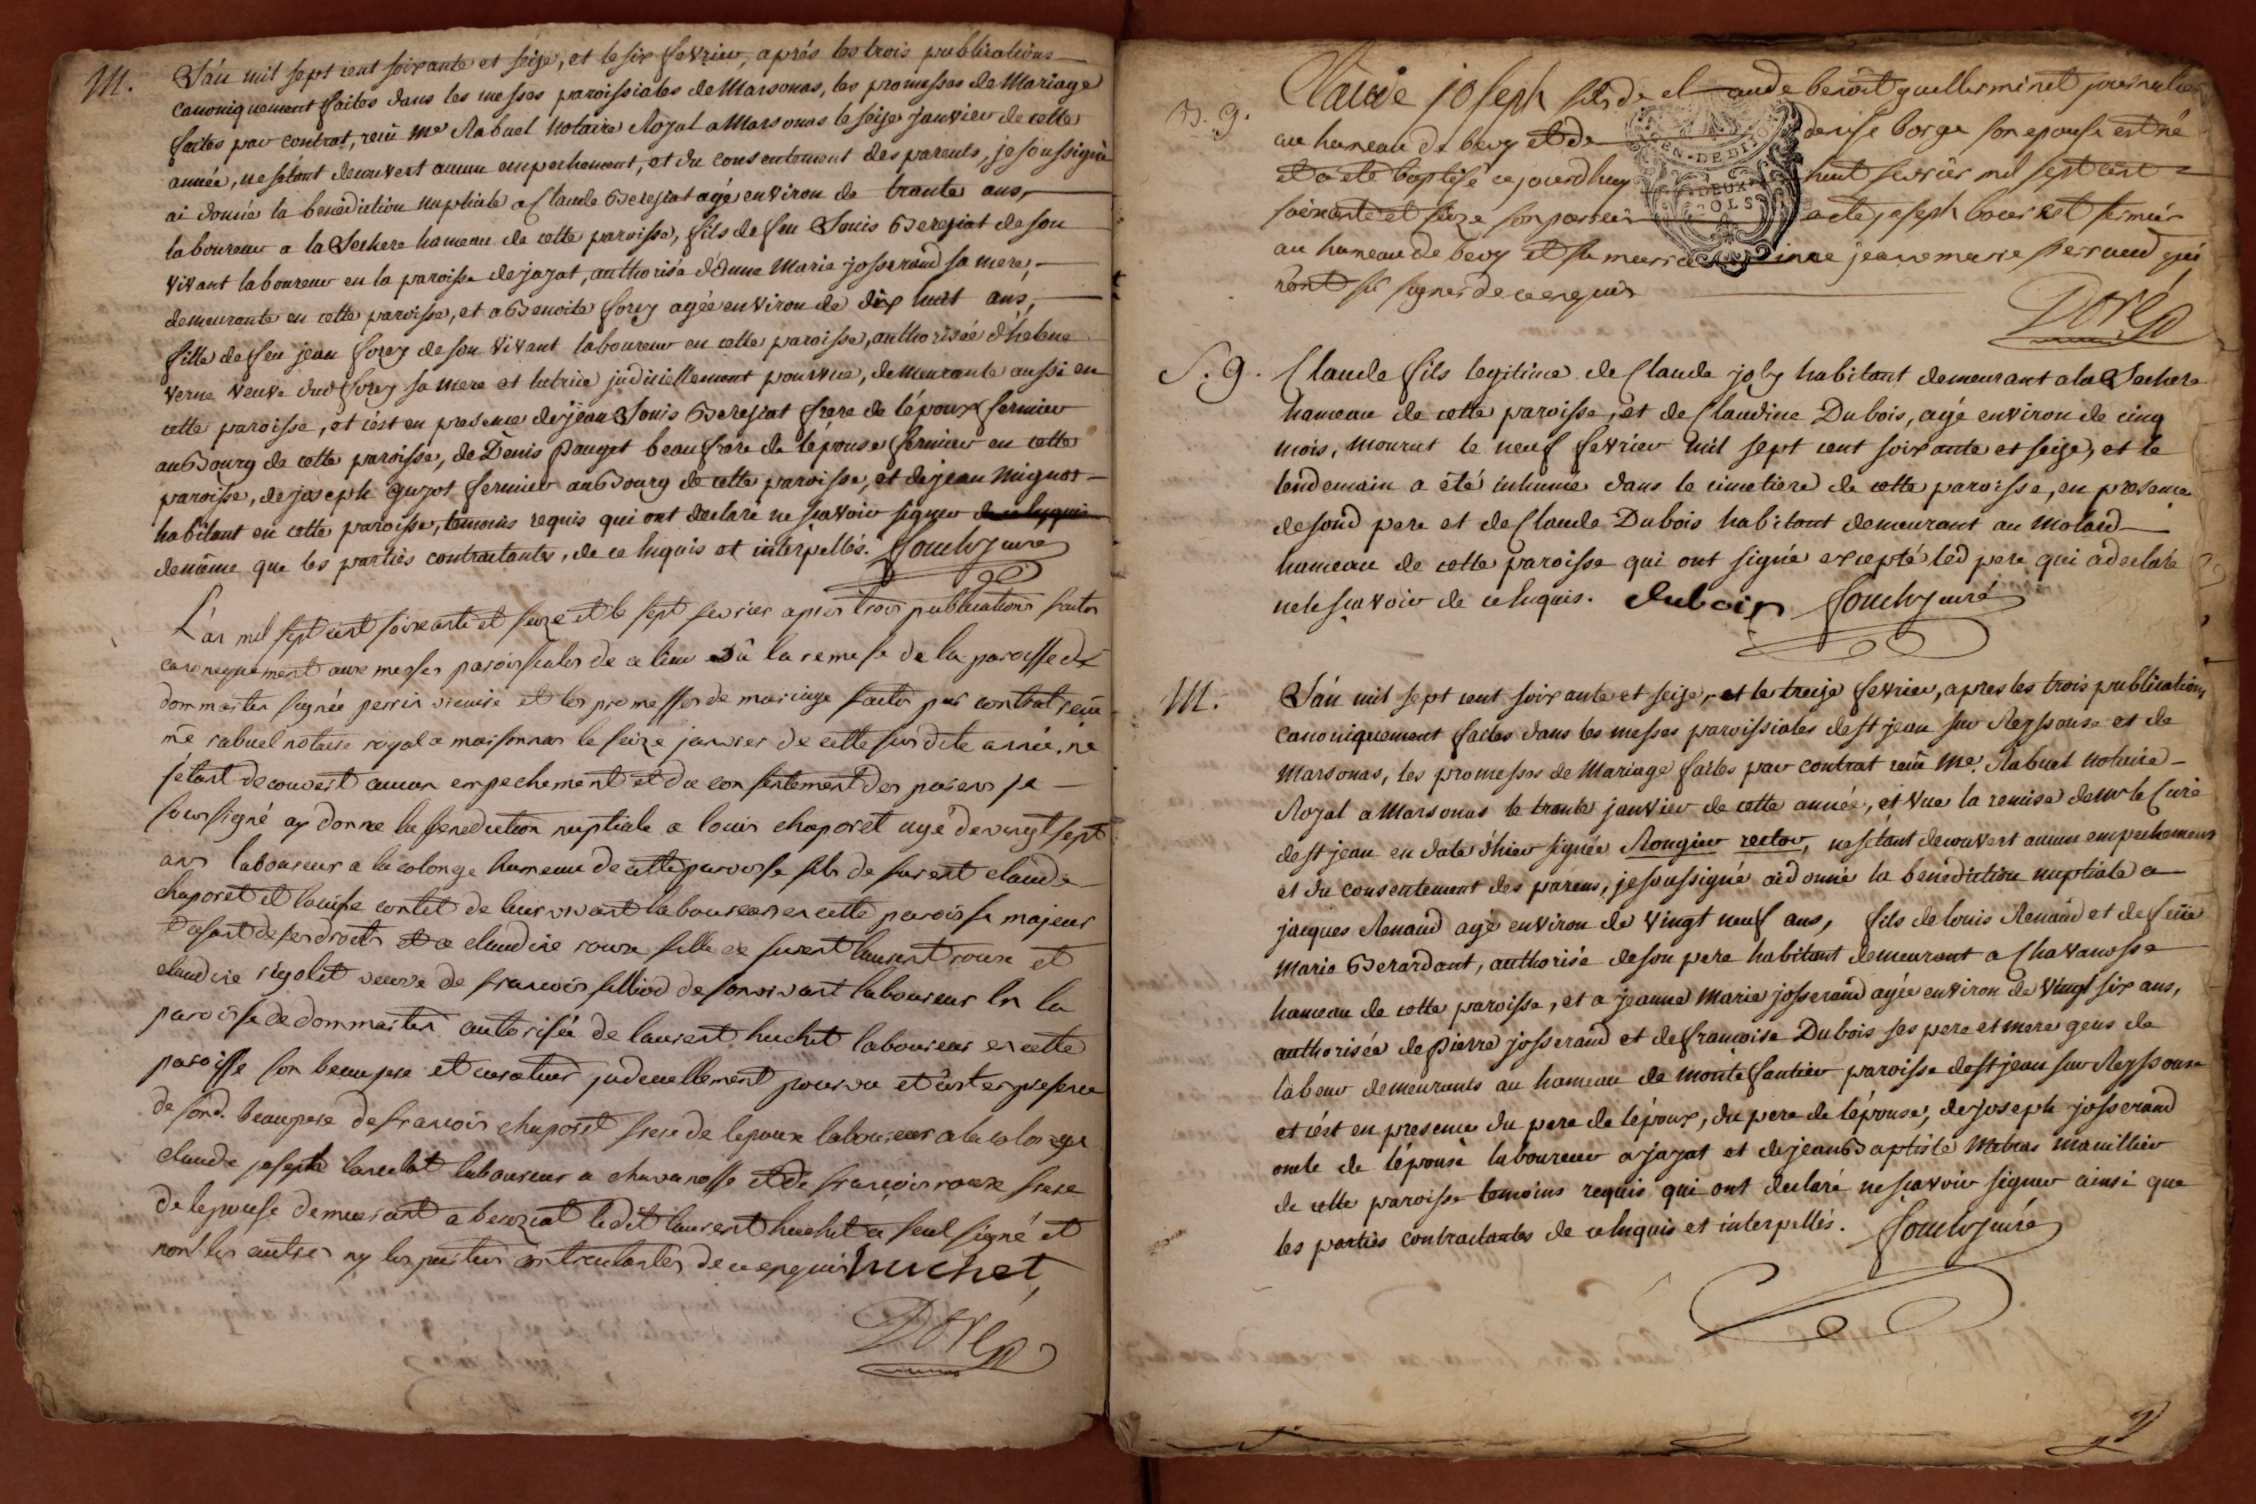 M.
L'an mil sept cent soixante et seize, et le six fevrier, aprés les trois publications
canoniquement faites dans les messes paroissiales de Marsonas, les promesses de Mariage
faites par contrat, reçu Me Rabuel Notaire Royal a Marsonas le seize janvier de cette
année, ne s'étant decouvert aucun empechement, et du consentement des parents, je soussigné
ai donné la benediction nuptiale a Claude Bereyiat agé environ de trante ans,
laboureur a la Lechere hameau de cette paroisse, fils de feu Louis Bereyiat de son
vivant laboureur en la paroisse de jayat, authorisé de Marie josserand sa mere,
demeurante en cette paroisse, et a Benoite forey agée environ de dix huit ans,
fille de feu jean forey de son vivant laboureur en cette paroisse, authorisée d'helene
verne veuve dud forey sa mere et tutrice judiciellement pourvue, demeurante aussi en
cette paroisse, et c'ést en presence de jean Louis Bereyiat frere de l'époux fermier
au Bourg de cette paroisse, de Denis Pauget beaufrere de l'épouse fermier en cette
paroisse, de joseph guyot fermier au Bourg de cette paroisse, et de jean Mignot
habitant en cette paroisse, temoins requis qui ont declaré ne sçavoir signer
de même que les parties contractantes, de ce enquis et interpellés. curé
L'an mil sept cent soixante et seize et le sept fevrier apres trois publications faites
canoniquement aux messes paroissiales de ce lieu vu la remise de la paroisse de
dommartin signée perrin vicaire et les promesses de mariage faites par contrat reçu
me rabuel notaire royal a marsonnas le seize janvier de cette susdite année, ne
s'etant decouvert aucun empechement et du consentement des parens je
soussigné ay donné la benediction nuptiale a louis chaporet agé de vingt sept
ans laboureur a la colonge hameau de cette paroisse fils de furent claude
chaporet et louise contet de leur vivant laboureurs en cette paroisse majeur
usant de ses droits et a claudine roux fille de furent laurent roux et
claudine rigolet veuve de francois filliod de son vivant laboureur en la
paroisse de dommartin autorisée de laurent huchet laboureur en cette
paroisse son beaupere et curateur judiciellement pourvu et c'est en presence
de sond. beaupere de francois chaporet frere de lepoux laboureur a la colonge
claude joseph lancelot laboureur a chavanosse et de francois roux frere
de lepouse demeurant a bereziat ledit laurent huchet a seul signé et
non les autres ny les parties contractantes de ce enquis huchet
Doré
B. g.
Claude joseph fils de claude benoit guilleminet
au hameau de bevy et de denise borge son epouse est né
et a eté baptisé ce jourdhuy huit fevrier mil sept cent
soixante et seize son parrein a eté joseph fermier
au hameau de bevy et sa marreine jeanne marie perraud qui
n'ont sû signer de ce enquis
Doré
S. g.
Claude fils legitime de Claude joly habitant demeurant a la Lechere
hameau de cette paroisse, et de Claudine Dubois, agé environ de cinq
mois, mourut le neuf fevrier mil sept cent soixante et seize, et le
lendemain a été inhumé dans le cimetiere de cette paroisse, en presence
de sond pere et de Claude Dubois habitant demeurant au Molard
hameau de cette paroisse qui ont signé excepté led pere qui a declaré
ne le sçavoir de ce enquis. dubois curé
M.
L'an mil sept cent soixante et seize, et le treize fevrier, apres les trois publications
canoniquement faites dans les messes paroissiales de st jean sur Reyssouse et de
Marsonas, les promesses de Mariage faites par contrat reçu Me. Rabuel Notaire
Royal a Marsonas le trante janvier de cette année, et vue la remise de mr le Curé
de st jean en date d'hier signée Rongier rector, ne s'étant decouvert aucun empechement
et du consentement des parens, je soussigné ai donné la benédiction nuptiale a
jacques Renaud agé environ de vingt neuf ans, fils de louis Renaud et de feüe
Marie Berardant, authorisé de son pere habitant demeurant a Chavanosse
hameau de cette paroisse, et a jeanne Marie josserand agée environ de vingt six ans,
authorisée de pierre josserand et de francoise Dubois ses pere et mere gens de
labeur demeurants au hameau de montefantier paroisse de st jean sur Reyssouse
et c'ést en presence du pere de l'époux, du pere de l'épouse, de joseph josserand
oncle de l'épouse laboureur a jayat et de jean Baptiste Mebras manillier
de cette paroisse temoins requis qui ont declaré ne sçavoir signer ainsi que
les parties contractantes de ce enquis et interpellés. curé